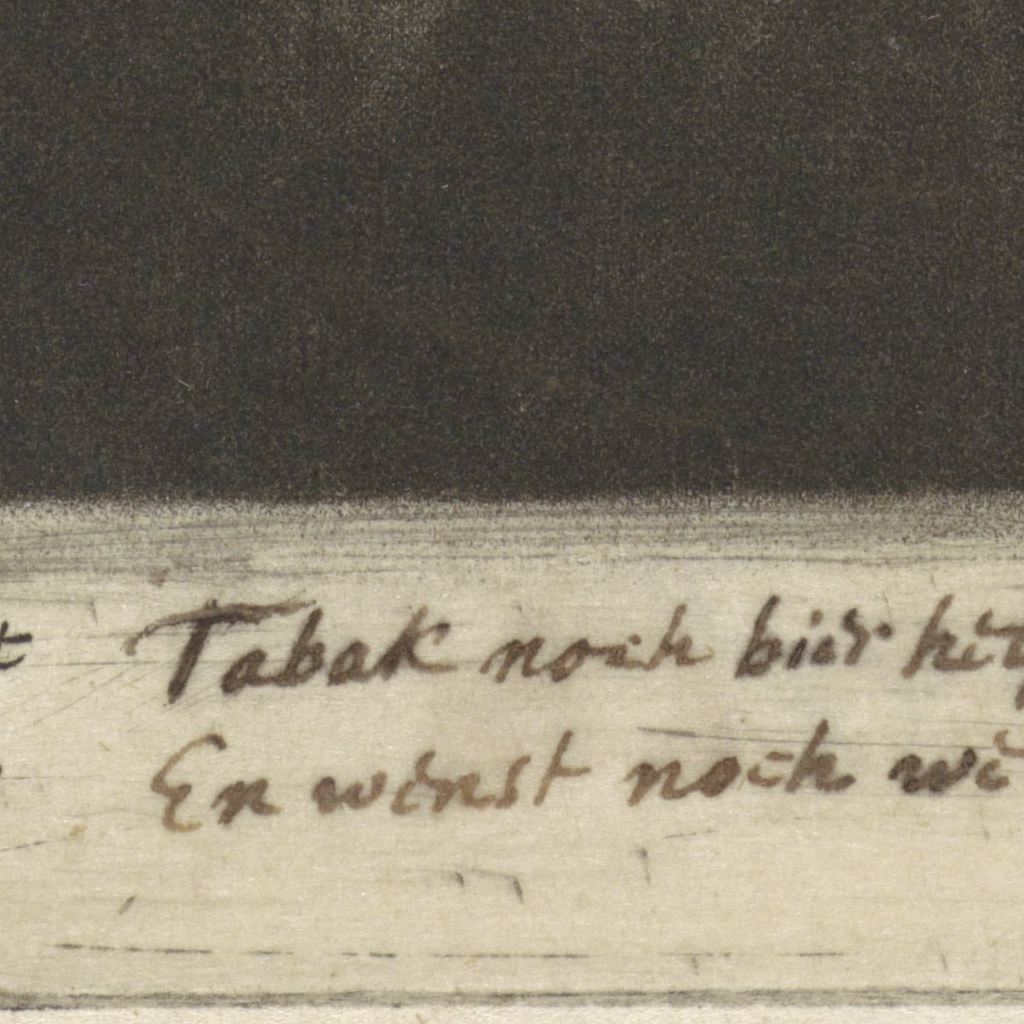 t Tabak noch bier
En wenst noch